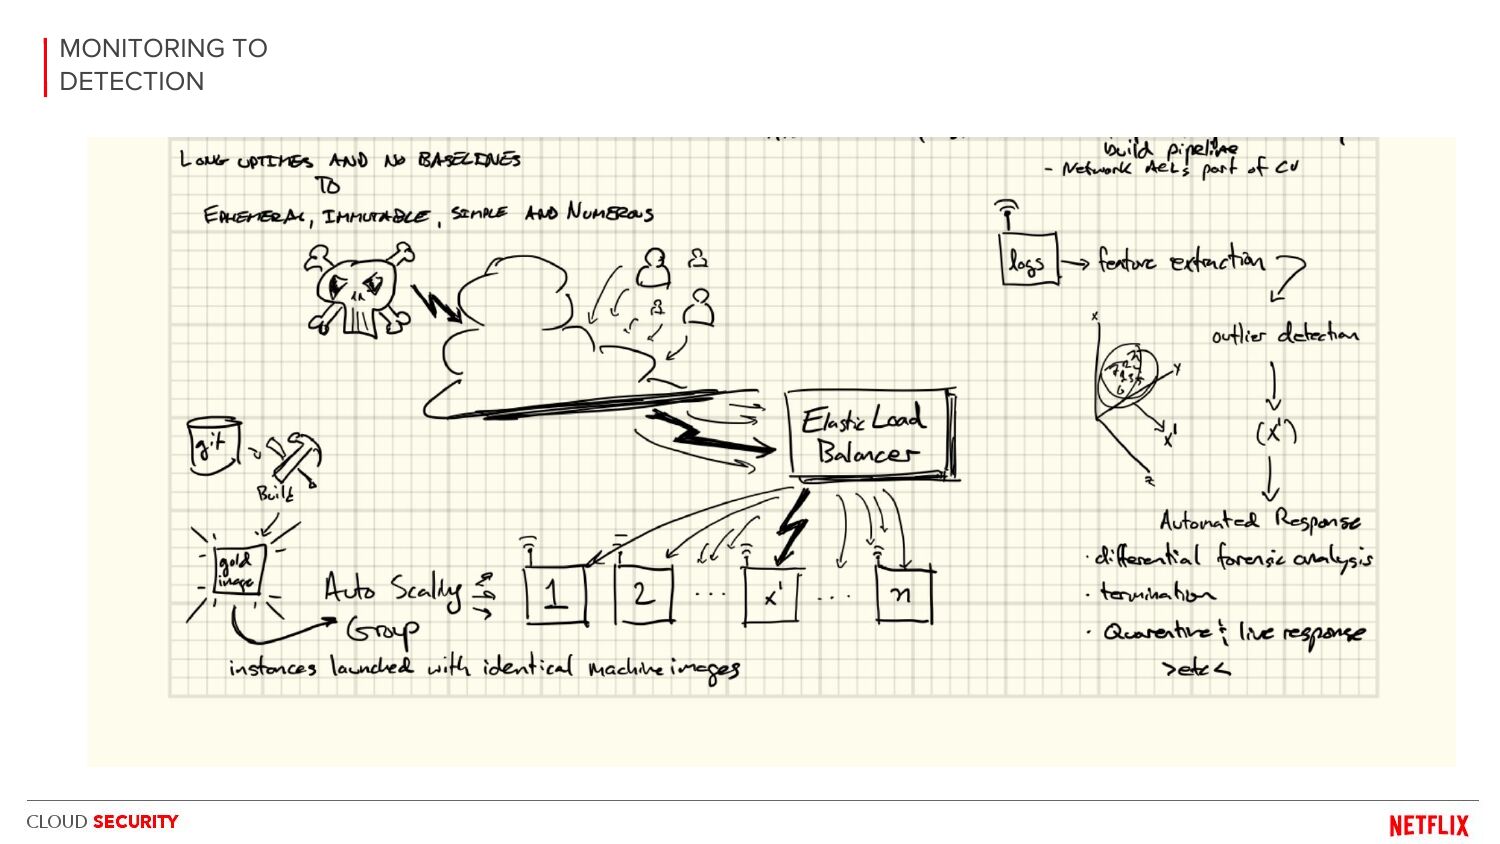 MONITORING TO
DETECTION
LONG UPTIMES AND NO BASELINES
TO
EPHEMERAL, IMMUTABLE, SIMPLE AND NUMEROUS
build pipeline
- Network ACLs part of CV
logs
feature extraction
outlier detection
x
y
x'
z
(x')
Automated Response
· differential forensic analysis
· termination
· Quarentine & live response
>etc<
Elastic Load
Balancer
git
Built
gold
image
Auto Scaling
Group
1
2
...
x'
...
n
instances launched with identical machine images
CLOUD SECURITY
NETFLIX